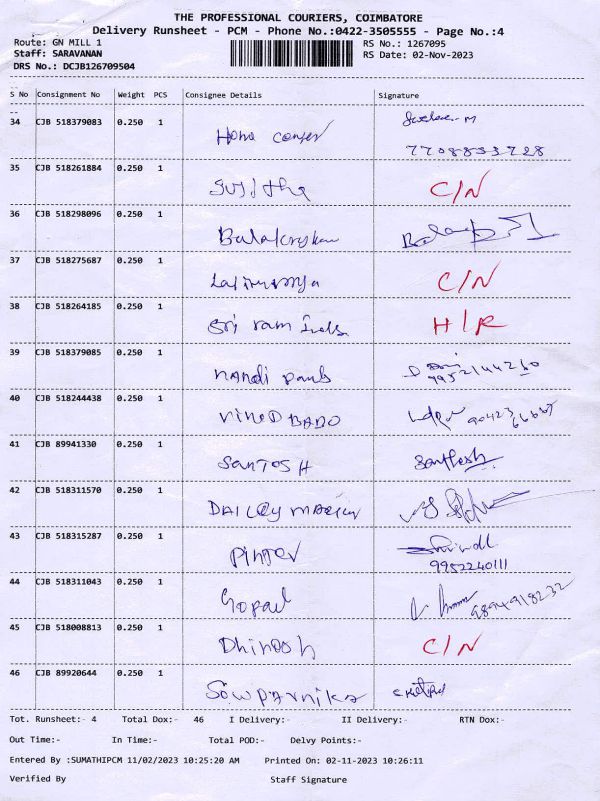 THE PROFESSIONAL COURIERS, COIMBATORE
Delivery Runsheet - PCM - Phone No.:0422-3505555 - Page No.:4
Route: GN MILL 1 RS No.: 1267095
Staff: SARAVANAN RS Date: 02-Nov-2023
DRS No.: DCJB126709504
S No Consignment No Weight PCS Consignee Details Signature
34 CJB 518379083 0.250 1
Home 7708833728
35 CJB 518261884 0.250 1
Sujitha C/N
36 CJB 518298096 0.250 1
37 CJB 518275687 0.250 1
C/N
38 CJB 518264185 0.250 1
Sri ram H/R
39 CJB 518379085 0.250 1
nandi 9952144260
40 CJB 518244438 0.250 1
VINOD BABO
41 CJB 89941330 0.250 1
SANTOSH Santhosh
42 CJB 518311570 0.250 1
43 CJB 518315287 0.250 1
9952240111
44 CJB 518311043 0.250 1
Gopal 9894918232
45 CJB 518008813 0.250 1
Dhinosh C/N
46 CJB 89920644 0.250 1
Sowparnika
Tot. Runsheet:- 4 Total Dox:- 46 I Delivery:- II Delivery:- RTN Dox:-
Out Time:- In Time:- Total POD:- Delvy Points:-
Entered By :SUMATHIPCM 11/02/2023 10:25:20 AM Printed On: 02-11-2023 10:26:11
Verified By Staff Signature